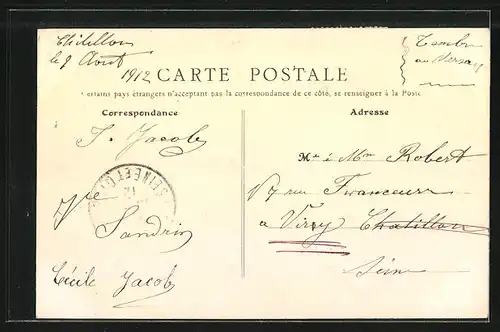 Châtillon
le 9 Août
1912
Timbre
au verso
CARTE POSTALE
Certains pays étrangers n'acceptant pas la correspondance de ce côté, se renseigner à la Poste
Correspondance
Adresse
J. Jacob
Mr & Mme Robert
SEINE ET O
12
17 rue Francœur
Vve
Sandrin
a Viry Chatillon
Cécile Jacob
Seine